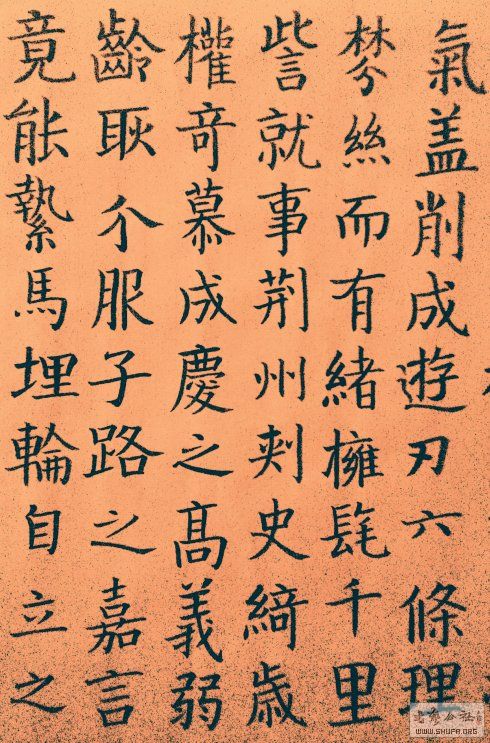 氣盖削成遊刃六條理
棼絲而有緒擁髦千里
訾就事荆州刾史綺歳
權竒慕成慶之髙義弱
齡耿介服子路之嘉言
竟能縶馬埋輪自立之
WWW.SHUFA.ORG